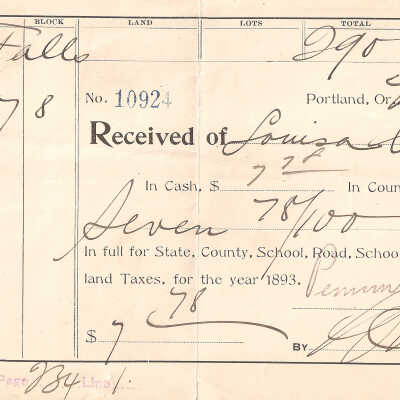 BLOCK LAND LOTS TOTAL
Falls 290
7 8
No. 10924 Portland, Or
Received of Louisa
In Cash, $ 7 78 In Coun
Seven 78/100
In full for State, County, School, Road, Schoo
land Taxes, for the year 1893.
$ 7 78
BY
Page 234 Line 1